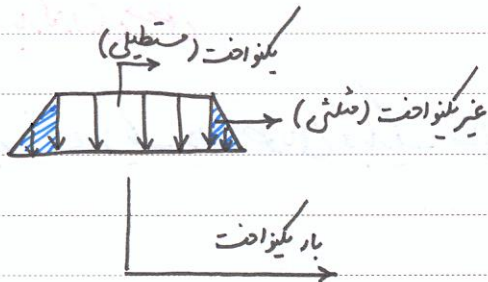 یکنواخت (مستطیلی)
غیر یکنواخت (مثلثی)
بار یکنواخت